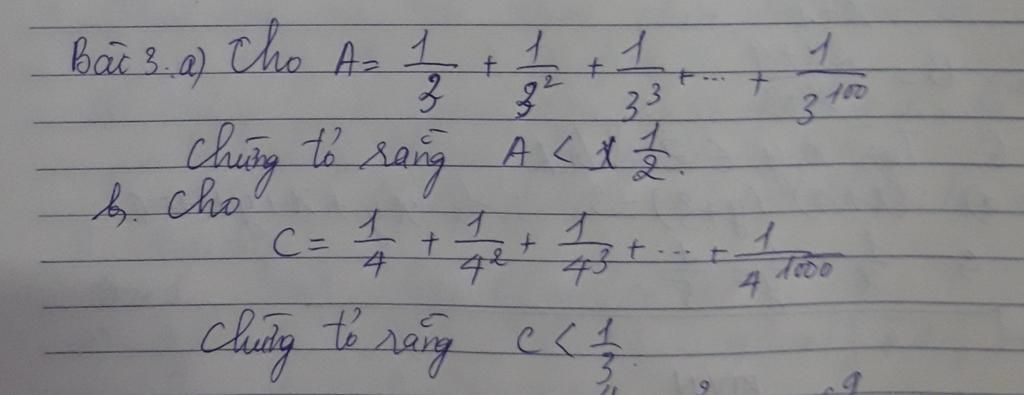 Bài 3. a) Cho A = 1/3 + 1/3² + 1/3³ + ... + 1/3¹⁰⁰
Chứng tỏ rằng A < 1/2.
b. Cho
C = 1/4 + 1/4² + 1/4³ + ... + 1/4¹⁰⁰⁰
Chứng tỏ rằng C < 1/3.